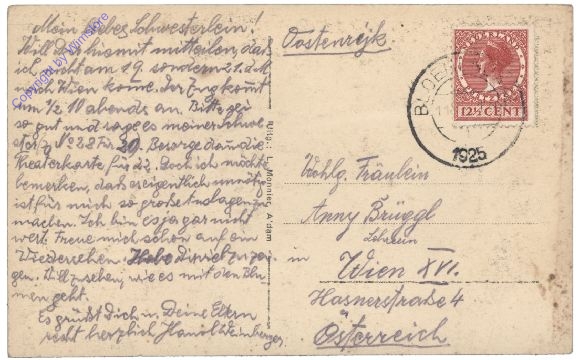 Mein liebes Schwesterlein!
Will dir hiermit mitteilen, daß
ich nicht am 19. sondern 21. d.M.
nach Wien komme. Der Zug kommt
um ½ 10 abends an. Bitte sei
so gut und sage es meiner Schwe-
ster. No 28 Für 20. Besorge dann die
Theaterkarte für 22. Doch ich möchte
bemerken, daß es eigentlich unnötig
ist für mich so große Auslagen zu
machen. Ich bin es ja gar nicht
wert. Freue mich schon auf ein
Wiedersehen. Habe Dir viel zu zei-
gen. Will zusehen, wie es mit den Blu-
men geht.
Es grüßt Dich u. Deine Eltern
recht herzlich Hansl Weinberger
Copyright by Wimstore
Uitg.: L. Monnier, A'dam
Oostenrijk.
NEDERLAND
12½ CENT
BLOE
1925
Wohlg. Fräulein
Anny Brüggl
Lehrerin
in Wien XVI.
Hasnerstraße 4
Österreich